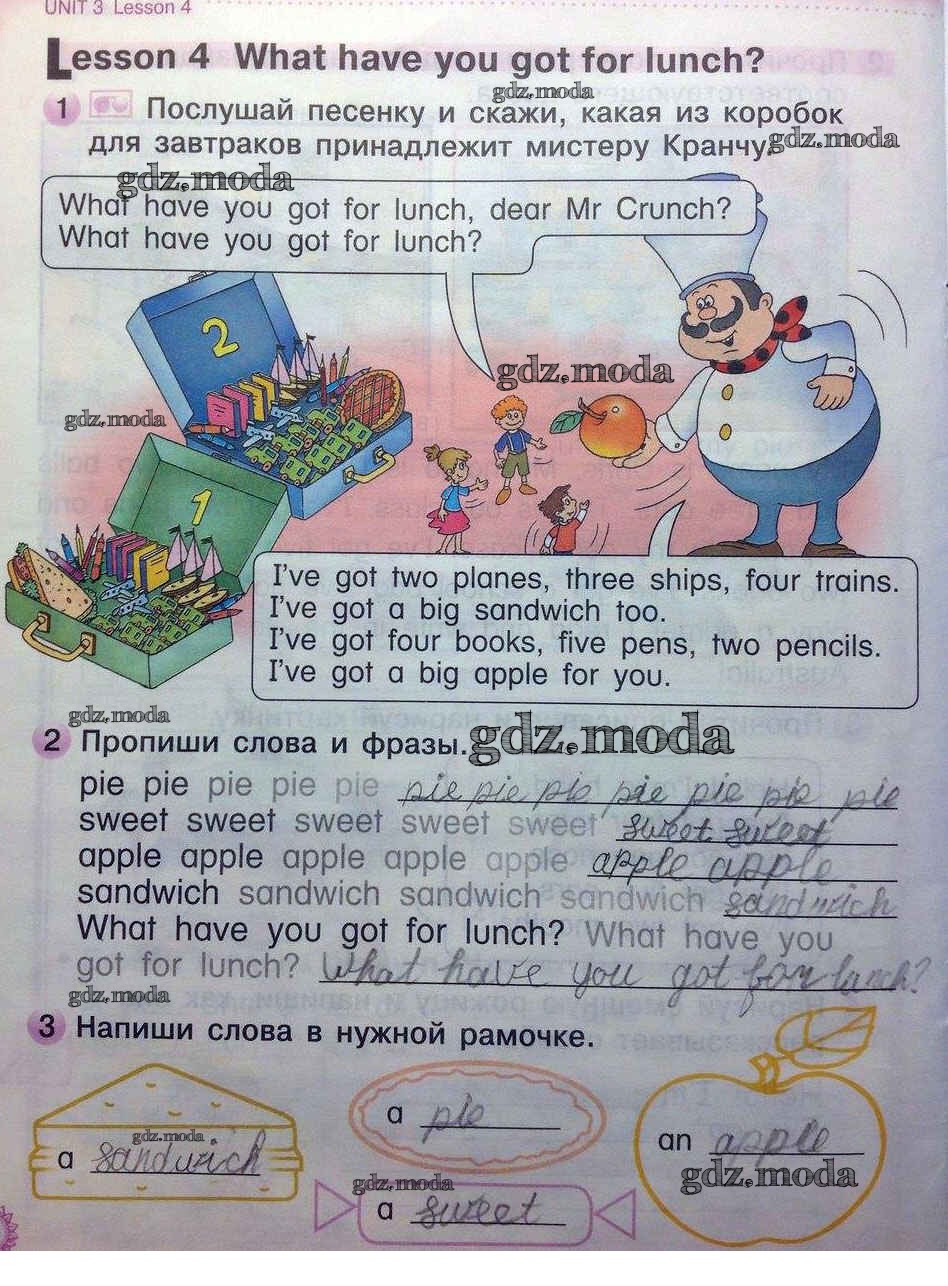 UNIT 3 Lesson 4
Lesson 4 What have you got for lunch?
gdz.moda
1 Послушай песенку и скажи, какая из коробок
для завтраков принадлежит мистеру Кранчу.
gdz.moda
gdz.moda
What have you got for lunch, dear Mr Crunch?
What have you got for lunch?
2
gdz.moda
gdz.moda
1
I've got two planes, three ships, four trains.
I've got a big sandwich too.
I've got four books, five pens, two pencils.
I've got a big apple for you.
gdz.moda
2 Пропиши слова и фразы.
gdz.moda
pie pie pie pie pie pie pie pie pie pie pie pie
sweet sweet sweet sweet sweet sweet sweet
apple apple apple apple apple apple apple
sandwich sandwich sandwich sandwich sandwich
What have you got for lunch? What have you
got for lunch? What have you got for lunch?
gdz.moda
3 Напиши слова в нужной рамочке.
gdz.moda
a sandwich
a pie
an apple
gdz.moda
gdz.moda
a sweet